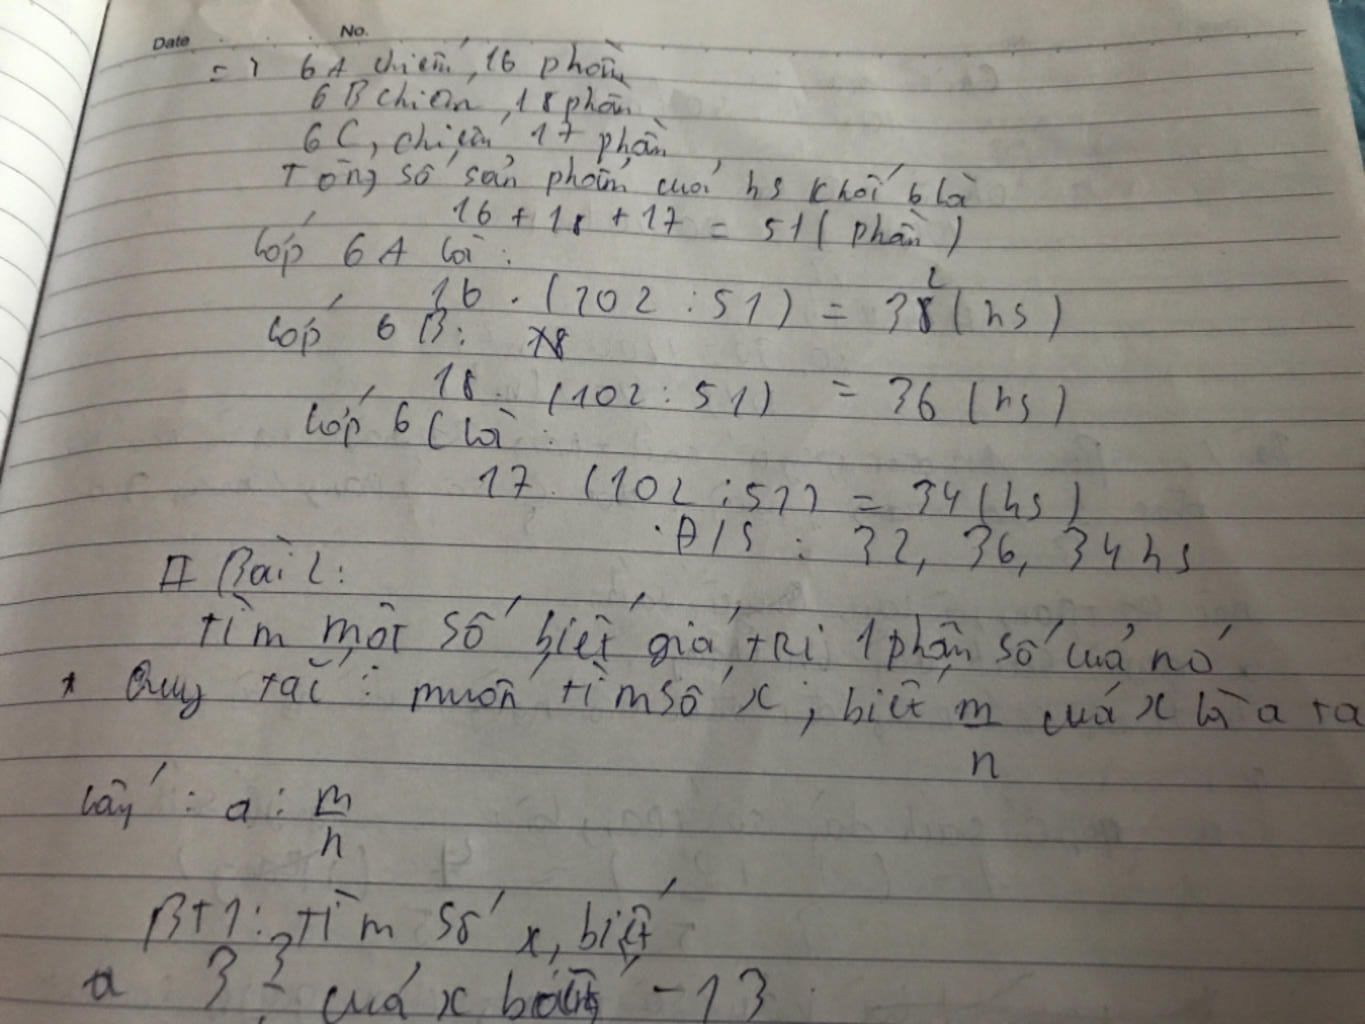 Date No.
=> 6A chiếm, 16 phần
6B chiếm, 18 phần
6C, chiếm 17 phần
Tổng số sản phẩm của hs khối 6 là
16 + 18 + 17 = 51 ( phần )
lớp 6A là :
16 . (102 : 51) = 32 (hs)
lớp 6B :
18 . (102 : 51) = 36 (hs)
lớp 6C là :
17 . (102 : 51) = 34 (hs)
Đ/S : 32, 36, 34 hs
II Bài 2 :
tìm một số biết giá trị 1 phần số của nó
* Quy tắc : muốn tìm số x, biết m/n của x là a ta
lấy : a : m/n
BT1 : tìm số x, biết
a 3 của x bằng -13